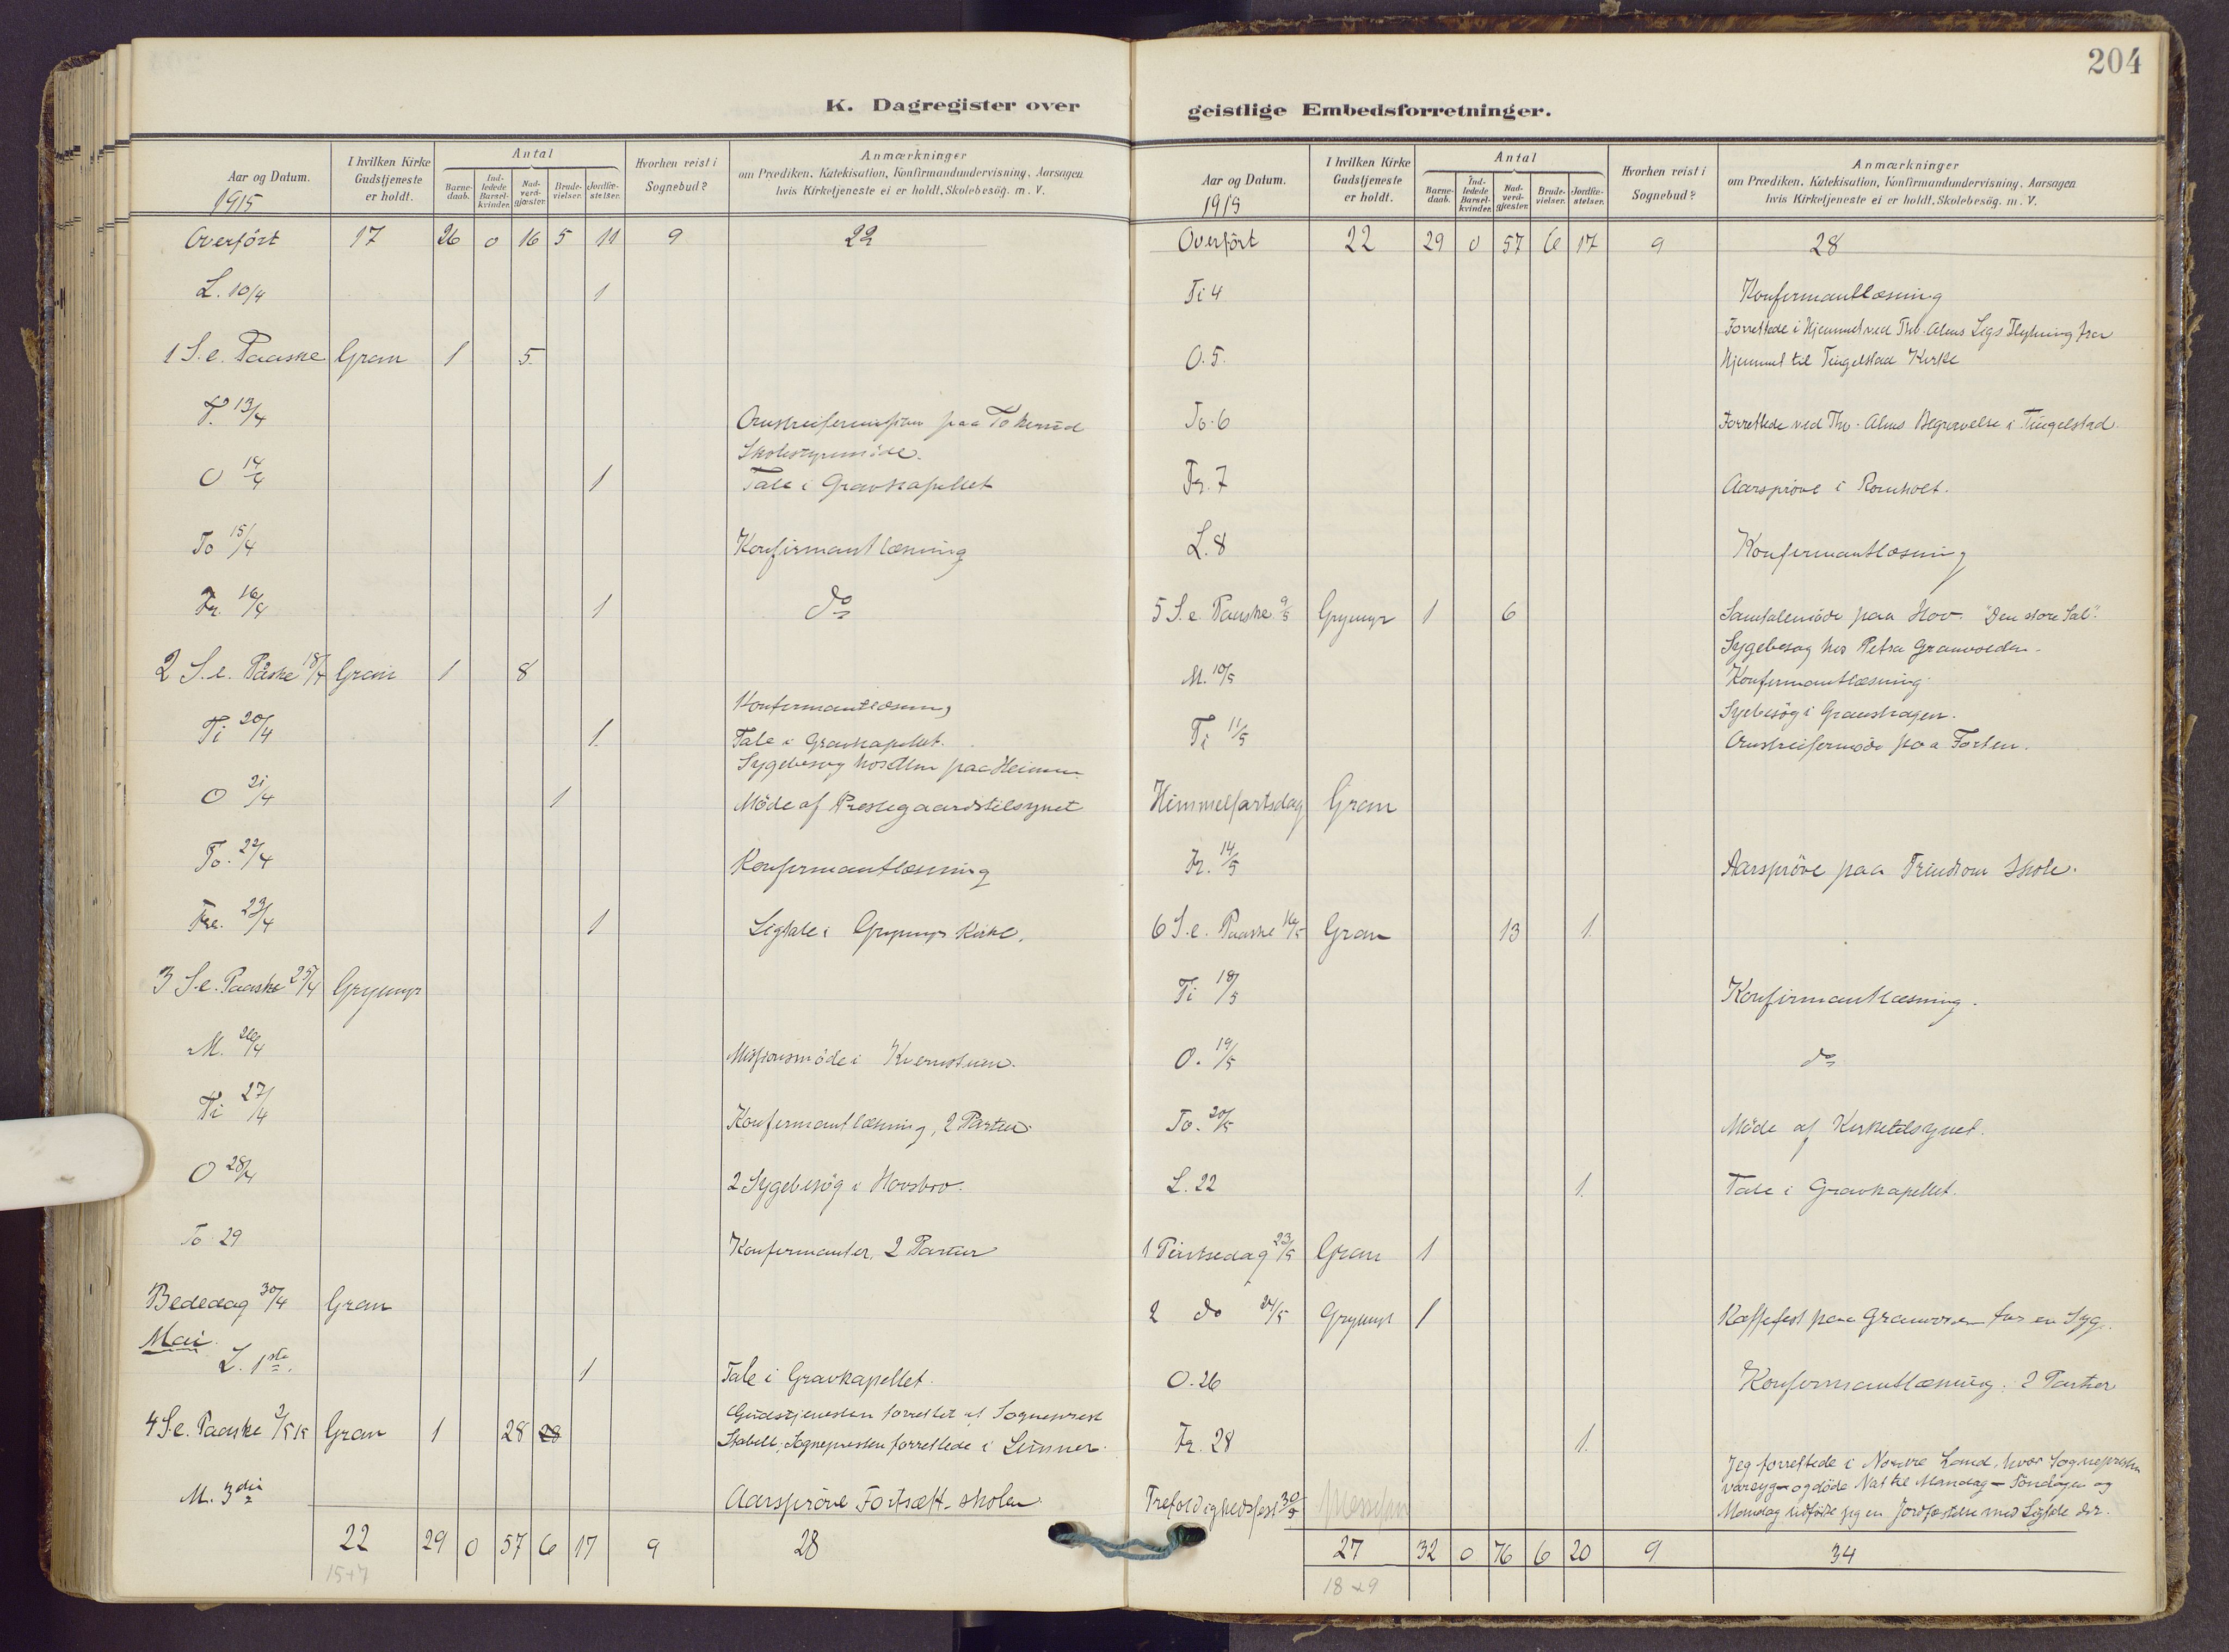 204
K. Dagregister over
Aar og Datum.
1915
I hvilken Kirke Gudstjeneste er holdt.
Antal
Barnedaab.
Indledede Barselkvinder.
Nadverdgjæster.
Brudevielser.
Jordfæstelser.
Hvorhen reist i Sognebud?
Anmærkninger
om Prædiken, Katekisation, Konfirmandundervisning, Aarsagen
hvis Kirketjeneste ei er holdt, Skolebesög. m. V.
Overført 17 26 0 16 5 11 9 22
L. 10/4 1
1 S. e. Paaske Gran 1 5
T. 13/4 paa Tokerud
Skolestyremöde.
O 14/4 1 Tale i Gravkapellet
To 15/4 Konfirmantlæsning
Fr. 16/4 1 do
2 S. e. Påske 18/4 Gran 1 8
Konfirmantlæsning
Ti 20/4 1 Tale i Gravkapellet.
Sygebesøg hos paa
O 21/4 1 Möde af Prestegaardstilsynet
To. 22/4 Konfirmantlæsning
Fre. 23/4 1 Ligtale i Grymyr Kirke.
3 S. e. Paaske 25/4 Grymyr
M. 26/4 Missionsmöde i Kvernstuen.
Ti 27/4 Konfirmantlæsning, 2 Partier
O 28/4 2 Sygebesög i Hovsbro.
To 29 Konfirmanter, 2 Partier
Bededag 30/4 Gran
Mai.
L. 1ste. 1 Tale i Gravkapellet.
Gudstjenesten forrettet af Sogneprest
4 S. e. Paaske 2/5 15 Gran 1 28 28 Stabell; Sognepresten forrettede i Lunner.
M. 3die Aarspröve Fortsætt. skolen
22 29 0 57 6 17 9 28
15+7
geistlige Embedsforretninger.
Aar og Datum.
1915
I hvilken Kirke Gudstjeneste er holdt.
Antal
Barnedaab.
Indledede Barselkvinder.
Nadverdgjæster.
Brudevielser.
Jordfæstelser.
Hvorhen reist i Sognebud?
Anmærkninger
om Prædiken, Katekisation, Konfirmandundervisning, Aarsagen
hvis Kirketjeneste ei er holdt, Skolebesög. m. V.
Overfört 22 29 0 57 6 17 9 28
Ti 4 Konfirmantlæsning
Forrettede i Hjemmet ved Th. Alms Ligs Flytning fra
O. 5. Hjemmet til Tingelstad Kirke
To. 6 Forrettede ved Th. Alms Begravelse i Tingelstad.
Fr. 7 Aarspröve i
L. 8 Konfirmantlæsning
5 S. e. Paaske 9/5 Grymyr 1 6 Samtalemöde paa Hov. "Den store Sal".
Sygebesøg hos Petra Granvolden.
M. 10/5 Konfirmantlæsning.
Sygebesög i Granshagen.
Ti 11/5 paa Forten.
Himmelfartsdag Gran
Fr. 14/5 Aarspröve paa Trintom Skole.
6 S. e. Paaske 16/5 Gran 13 1
Ti 18/5 Konfirmantlæsning.
O. 19/5 do
To. 20/5 Möde af Kirketilsynet.
L. 22 1 Tale i Gravkapellet.
1 Pintsedag 23/5 Gran 1
2 do 24/5 Grymyr 1 Kaffefest paa for en Syg.
O. 26 Konfirmantlæsning, 2 Partier
Fr. 28 1
Jeg forrettede i Nordre Land, hvor Sognepresten
var syg og döde Nat til Mandag - Söndagen og
Trefoldighedsfest 30/5 Mandag udförte jeg en Jordfæstelse med Ligtale der.
27 32 0 76 6 20 9 34
18+9